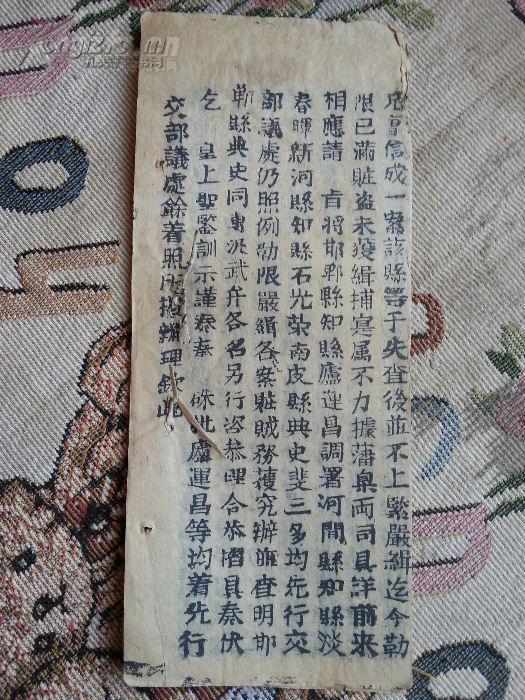 曹信成一案該縣等于失查後並不上緊嚴緝迄今勒
限已滿賍盗未獲緝捕寔属不力據藩臬両司具詳前来
相應請 旨将邯鄲縣知縣盧運昌調署河間縣知縣淡
春暉新河縣知縣石光荣南皮縣典史斐三多均先行交
部議處仍照例勒限嚴緝各案賍賊務獲究辦查明邯
鄲縣典史同專汛武弁各名另行咨恭理合恭摺具奏伏
乞 皇上聖鑒訓示謹奏奉 硃批盧運昌等均着先行
交部議處餘着照所擬辦理欽此